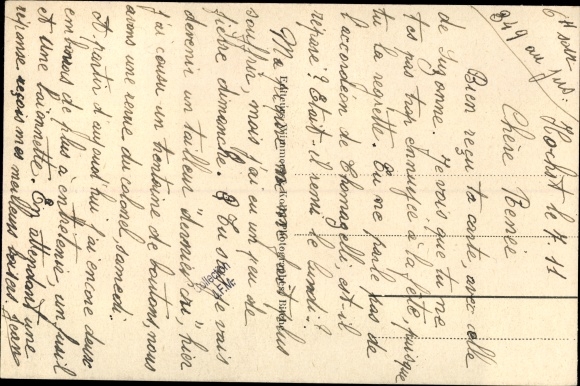 Höchst le 7. 11
Chère Renée
Bien reçu ta carte avec celle
de Suzonne. Je vois que tu ne
t'es pas trop ennuyée à la fête, puisque
tu la regrette. Tu me parle pas de
l'accordéon de est-il
réparé? Etait-il remi le lundi?
Ma ne me fait plus
souffrir, mais j'ai eu un peu de
fièvre dimanche. Tu sais je vais
devenir un tailleur "dernier cri", hier
j'ai cousu un trentaine de boutons, nous
avons une revue du colonel samedi.
A partir d'aujourd'hui j'ai encore deux
de plus à entretenir, un fusil
et une baïonnette. En attendant une
réponse reçois mes meilleurs baisers. Jean
849 au jus.
Collection